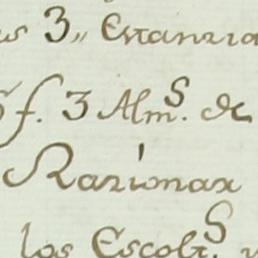 3,, Estanzia
f. 3 Alm.s de
Razionax
los Escolx.s